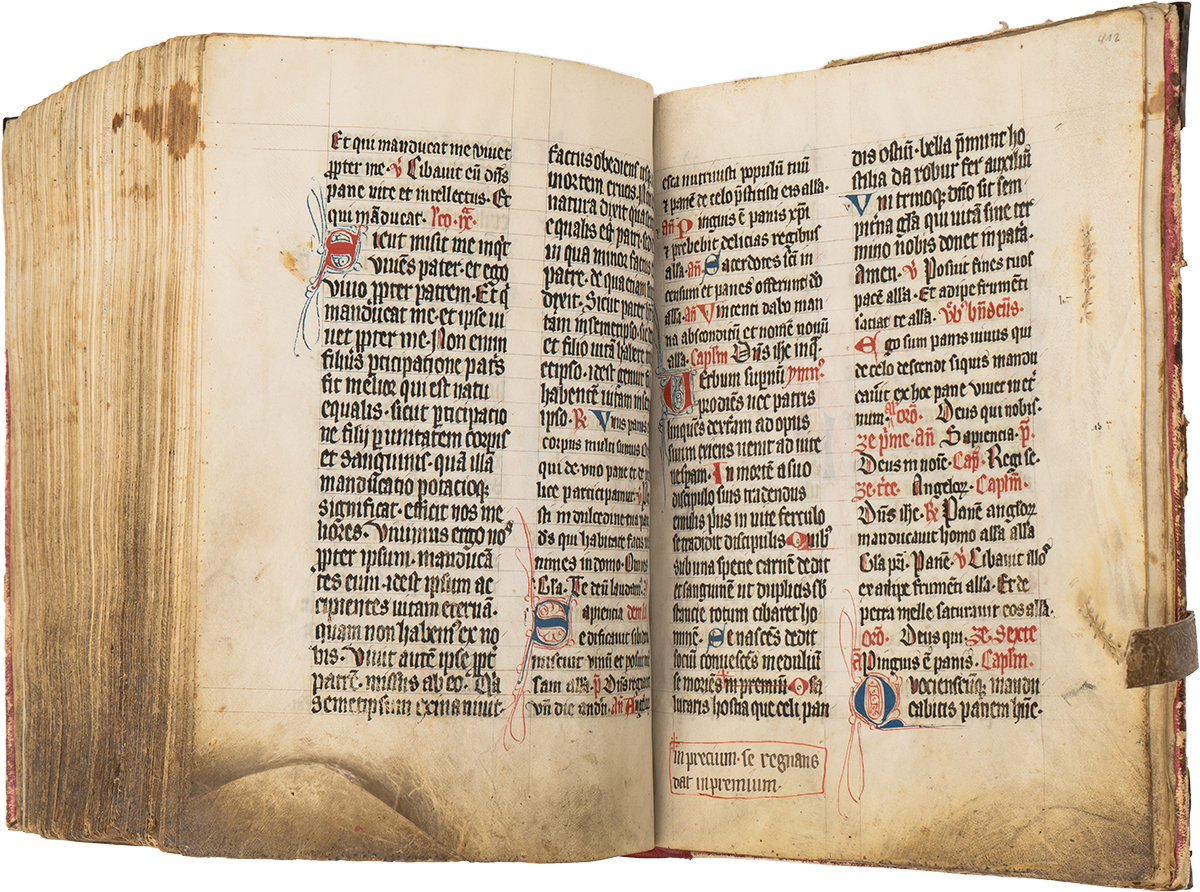 412
Et qui manducat me vivet
ꝓpter me · v̾ Cibavit eū ossꝭ
pane vite et intellectus · Et
qui māducat · Leo · ix͛ ·
Sicut misit me inqͥt
vivēs pater · et ego
vivo ꝓpter patrem · Et qͥ
manducat me · et ipse vi
vet ꝓpter me · Non enim
filius ꝑticipatione patꝭ
fit melior qui est natu
equalis · sicut ꝑticipatio
ne filij ꝑ unitatem corꝑis
et sanguinis · quā illā
manducatio potacioqꝫ
significat · efficit nos me
liores · Vivimus ergo noˢ
ꝓpter ipsum · manducā
tes eum · idest ipsum ac
cipientes vitam eternā ·
quam non habemꝰ ex no
bis · Vivit autē ipse ꝓpt̾
patrē · missus ab eo · Q̄a
semetipsum exinanivit ·
factus obediens us
mortem crucis
natura dixit qua
equalis est patri
in qua minor factus
patre · de qua etiam
dixit · Sicut pater h
tam in semetipso · sic de
et filio vitā habere in
etipso · idest genuit
habentē vitam in se
ipso · ℟ Vnus panis
corpus multi sumus
qui de uno pane et
lice participamus · v̾
sti in dulcedine tua pau
ds qui habitare facis
nimes in domo ·
Gl̄a · Te deū laudamꝰ ·
Sapiencia
edificavit sibi do
miscuit vinū et posuit
sam all̄a · p̄ Dn̄s regnavit
vn̄ die andn̄ · an̄ Angelo
esca nutrivisti populū tuū
et panē de celo p̄stitisti eis all̄a ·
an̄ Pinguis ē panis xp̄i
et prebebit delicias regibus
all̄a · an̄ Sacerdotes sc̄i in
censum et panes offerunt do
all̄a · an̄ Vincenti dabo man
na absconditū et nomē novū
all̄a · Cap̄lm Dn̄s ih̄e inqͥ ·
Verbum supnū ymnꝰ
prodiēs nec patris
linquēs dext̾am ad opus
suum exiens venit ad vite
vesperam · In mortē a suo
discipulo suis tradendus
emulis prius in vite ferculo
se tradidit discipulis · Quibꝰ
sub una specie carnē dedit
et sanguinē ut duplicis sb
stancie totum cibaret ho
minē · Se nascēs dedit
sociū convescēs in eduliū
se moriēs in premiū · O sa
lutaris hostia que celi pan
in precium · se regnans
dat in premium ·
dis ostiū · bella p̄munt ho
stilia da robur fer auxiliū
Vni trinoqꝫ dn̄o sit sem
pit̾na gl̄a qui vitā sine ter
mino nobis donet in pat̾a ·
Amen · v̾ Posuit fines tuos
pacē all̄a · Et adipe frumēti
saciat te all̄a ·
Ego sum panis vivus qui
de celo descendi siquis mandu
caverit ex hoc pane vivet in et̾
num · orō · Deus qui nobis ·
Ze p̾me · an̄ Sapiencia · p̄ ·
Deus in noīe · Cap̄ · Regi se ·
Ze t̾cie · Angeloꝝ · Cap̄lm ·
Dn̄s ih̄e · ℟ Panē angloꝝ
manducavit homo all̄a all̄a
Gl̄a pr̄i · Panē · v̾ Cibavit illoˢ
ex adipe frumēti all̄a · Et de
petra melle saturavit eos all̄a ·
orō · Deus qui · Ze · Sexte
an̄ Pinguis ē panis · Cap̄lm ·
Quociēscūqꝫ mandu
cabitis panem hūc ·